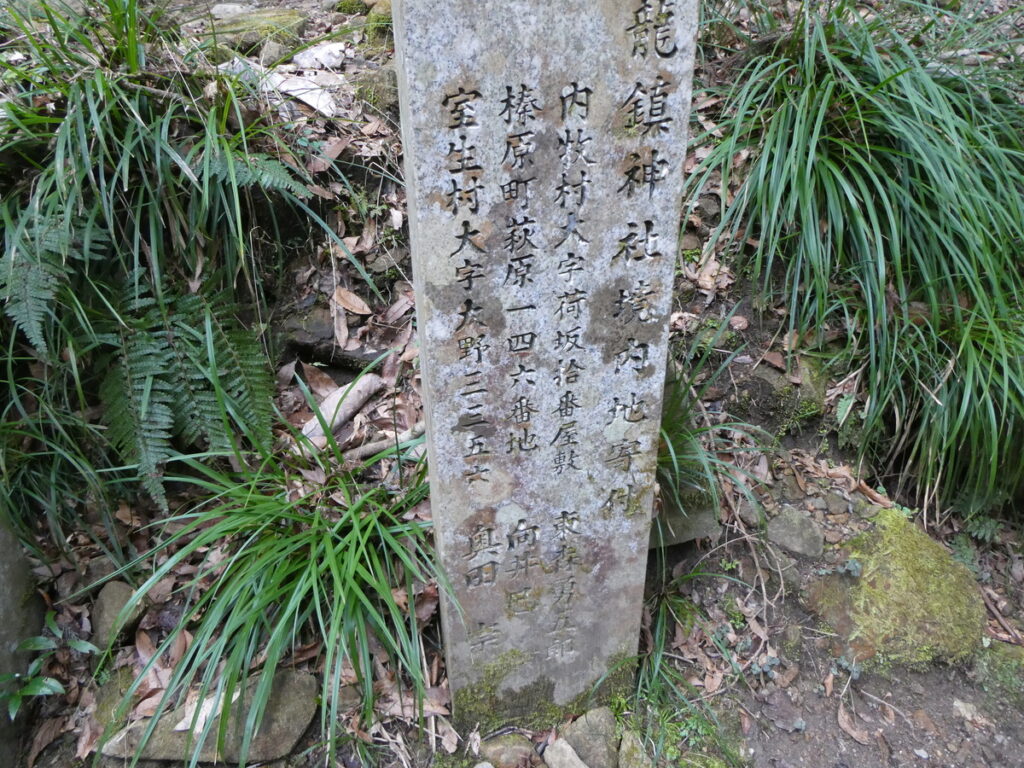 龍鎮神社境内地寄付
内牧村大字荷坂拾番屋敷 東
榛原町萩原一四六番地 向井
室生村大字大野二二五六 奥田